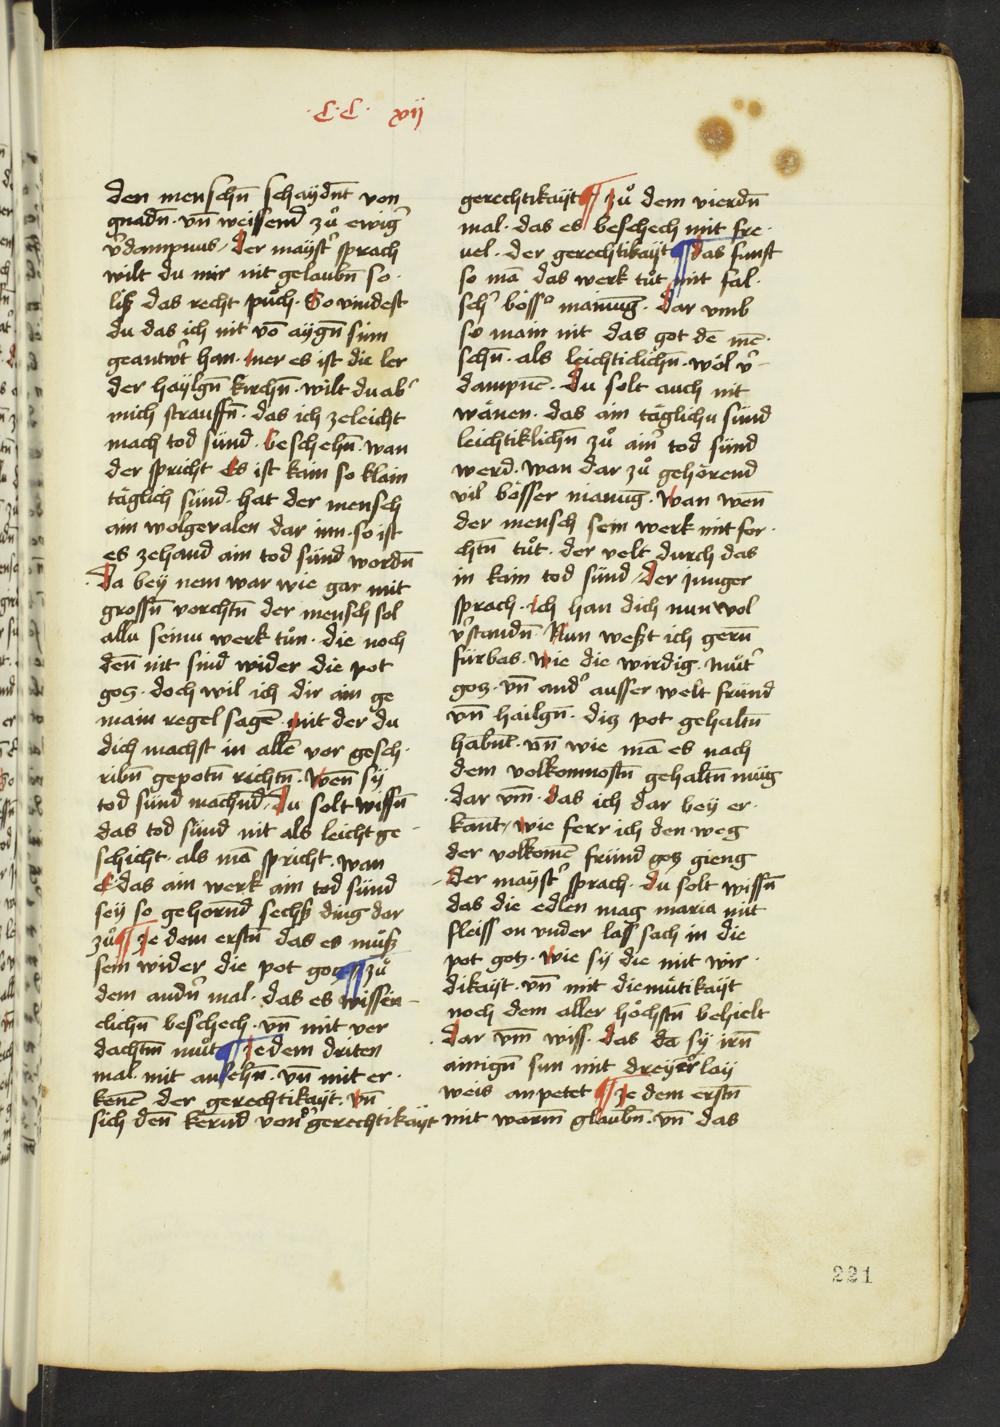 ·C·C· xvij
den menschn̄ schaydn̄t von
gnadn̄· vn̄ weissend zů ewig᷑
v᷑dampnus· Der mayst᷑ sprach
wilt du mir nit gelaubn̄ so·
liß das recht půch· So vindest
du das ich nit vō aygn̄ sinn
geantw᷑t han· mer es ist die ler
der haylgn̄ kirchn̄· wilt du ab᷑
mich strauffn̄· das ich ze leicht
mach tod sünd· beschehn̄· wan
der spricht Es ist kain so klain
täglich sünd· hat der mensch
ain wolgevalen dar inn· so ist
es zehand ain tod sünd wordn̄
Da bey nem war wie gar mit
grossn̄ vorchtn̄ der mensch sol
allu seinu werk tůn· die noch
den̄ nit sind wider die pot
gotz· doch wil ich dir ain ge
main regel sagē· mit der du
dich machst in allē vor gesch·
ribn̄ gepotn̄ richtn̄· Wen̄ sy
tod sünd machn̄d· Du solt wissn̄
das tod sünd nit als leicht ge-
schicht· als mā spricht· wan
E· das ain werk ain tod sünd
sey so gehorn̄d sechß ding dar
zů ¶ Ze dem erstn̄ das es můß
sein wider die pot gotz ¶ zů
dem andn᷑ mal· das es wissen-
clichn̄ beschech· vn̄ mit ver
dachtm̄ můt ¶ Ze dem driten
mal· mit ansehn̄· vn̄ mit er·
kenē der gerechtikayt· vn̄
sich den̄ kernd von᷑ gerechtikayt
gerechtikayt ¶ Zů dem vierdn̄
mal· das es beschech mit fre·
uel· der gerechtikayt ¶ Das funft
so mā das werk tůt mit fal·
sch᷑ böss᷑ mainūg· Dar vmb
so main nit das got dē mē·
schn̄· als leichticlichn̄· wöl v᷑-
dampnē· Du solt auch nit
wänen· das ain täglichu sünd
leichtiklichn̄ zů ain᷑ tod sünd
werd· wan dar zů gehörend
vil bösser mainūg· Wan wen̄
der mensch sein werk mit for·
chtn̄ tůt· der velt durch das
in kain tod sünd· Der junger
sprach· Ich han dich nun wol
v᷑standn̄· Nun weßt ich gern̄
fürbas· Wie die wirdig· můt᷑
gotz· vn̄ and᷑ ausser welt fründ
vn̄ hailgn̄· diß pot gehaltn̄
habn̄t· vn̄ wie mā es nach
dem volkomnostn̄ gehaltn̄ müg
·dar vm̄· Das ich dar bey er·
kant· wie ferr ich den weg
der volkomē fründ gotz gieng
Der mayst᷑ sprach· du solt wissn̄
das die edlen mag maria mit
fleiss on vnder lass sach in die
pot gotz· wie sy die mit wir·
dikayt· vn̄ mit diemütikayt
noch dem aller höchstn̄ behielt
·Dar vm̄ wiss· das da sy irn̄
ainign̄ sun mit dreyerlay
weis anpetet ¶ Ze dem erstn̄
mit warm̄ glaubn̄· vn̄ das
221